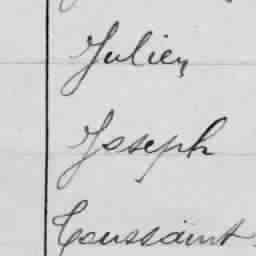 Julien
Joseph
Toussaint